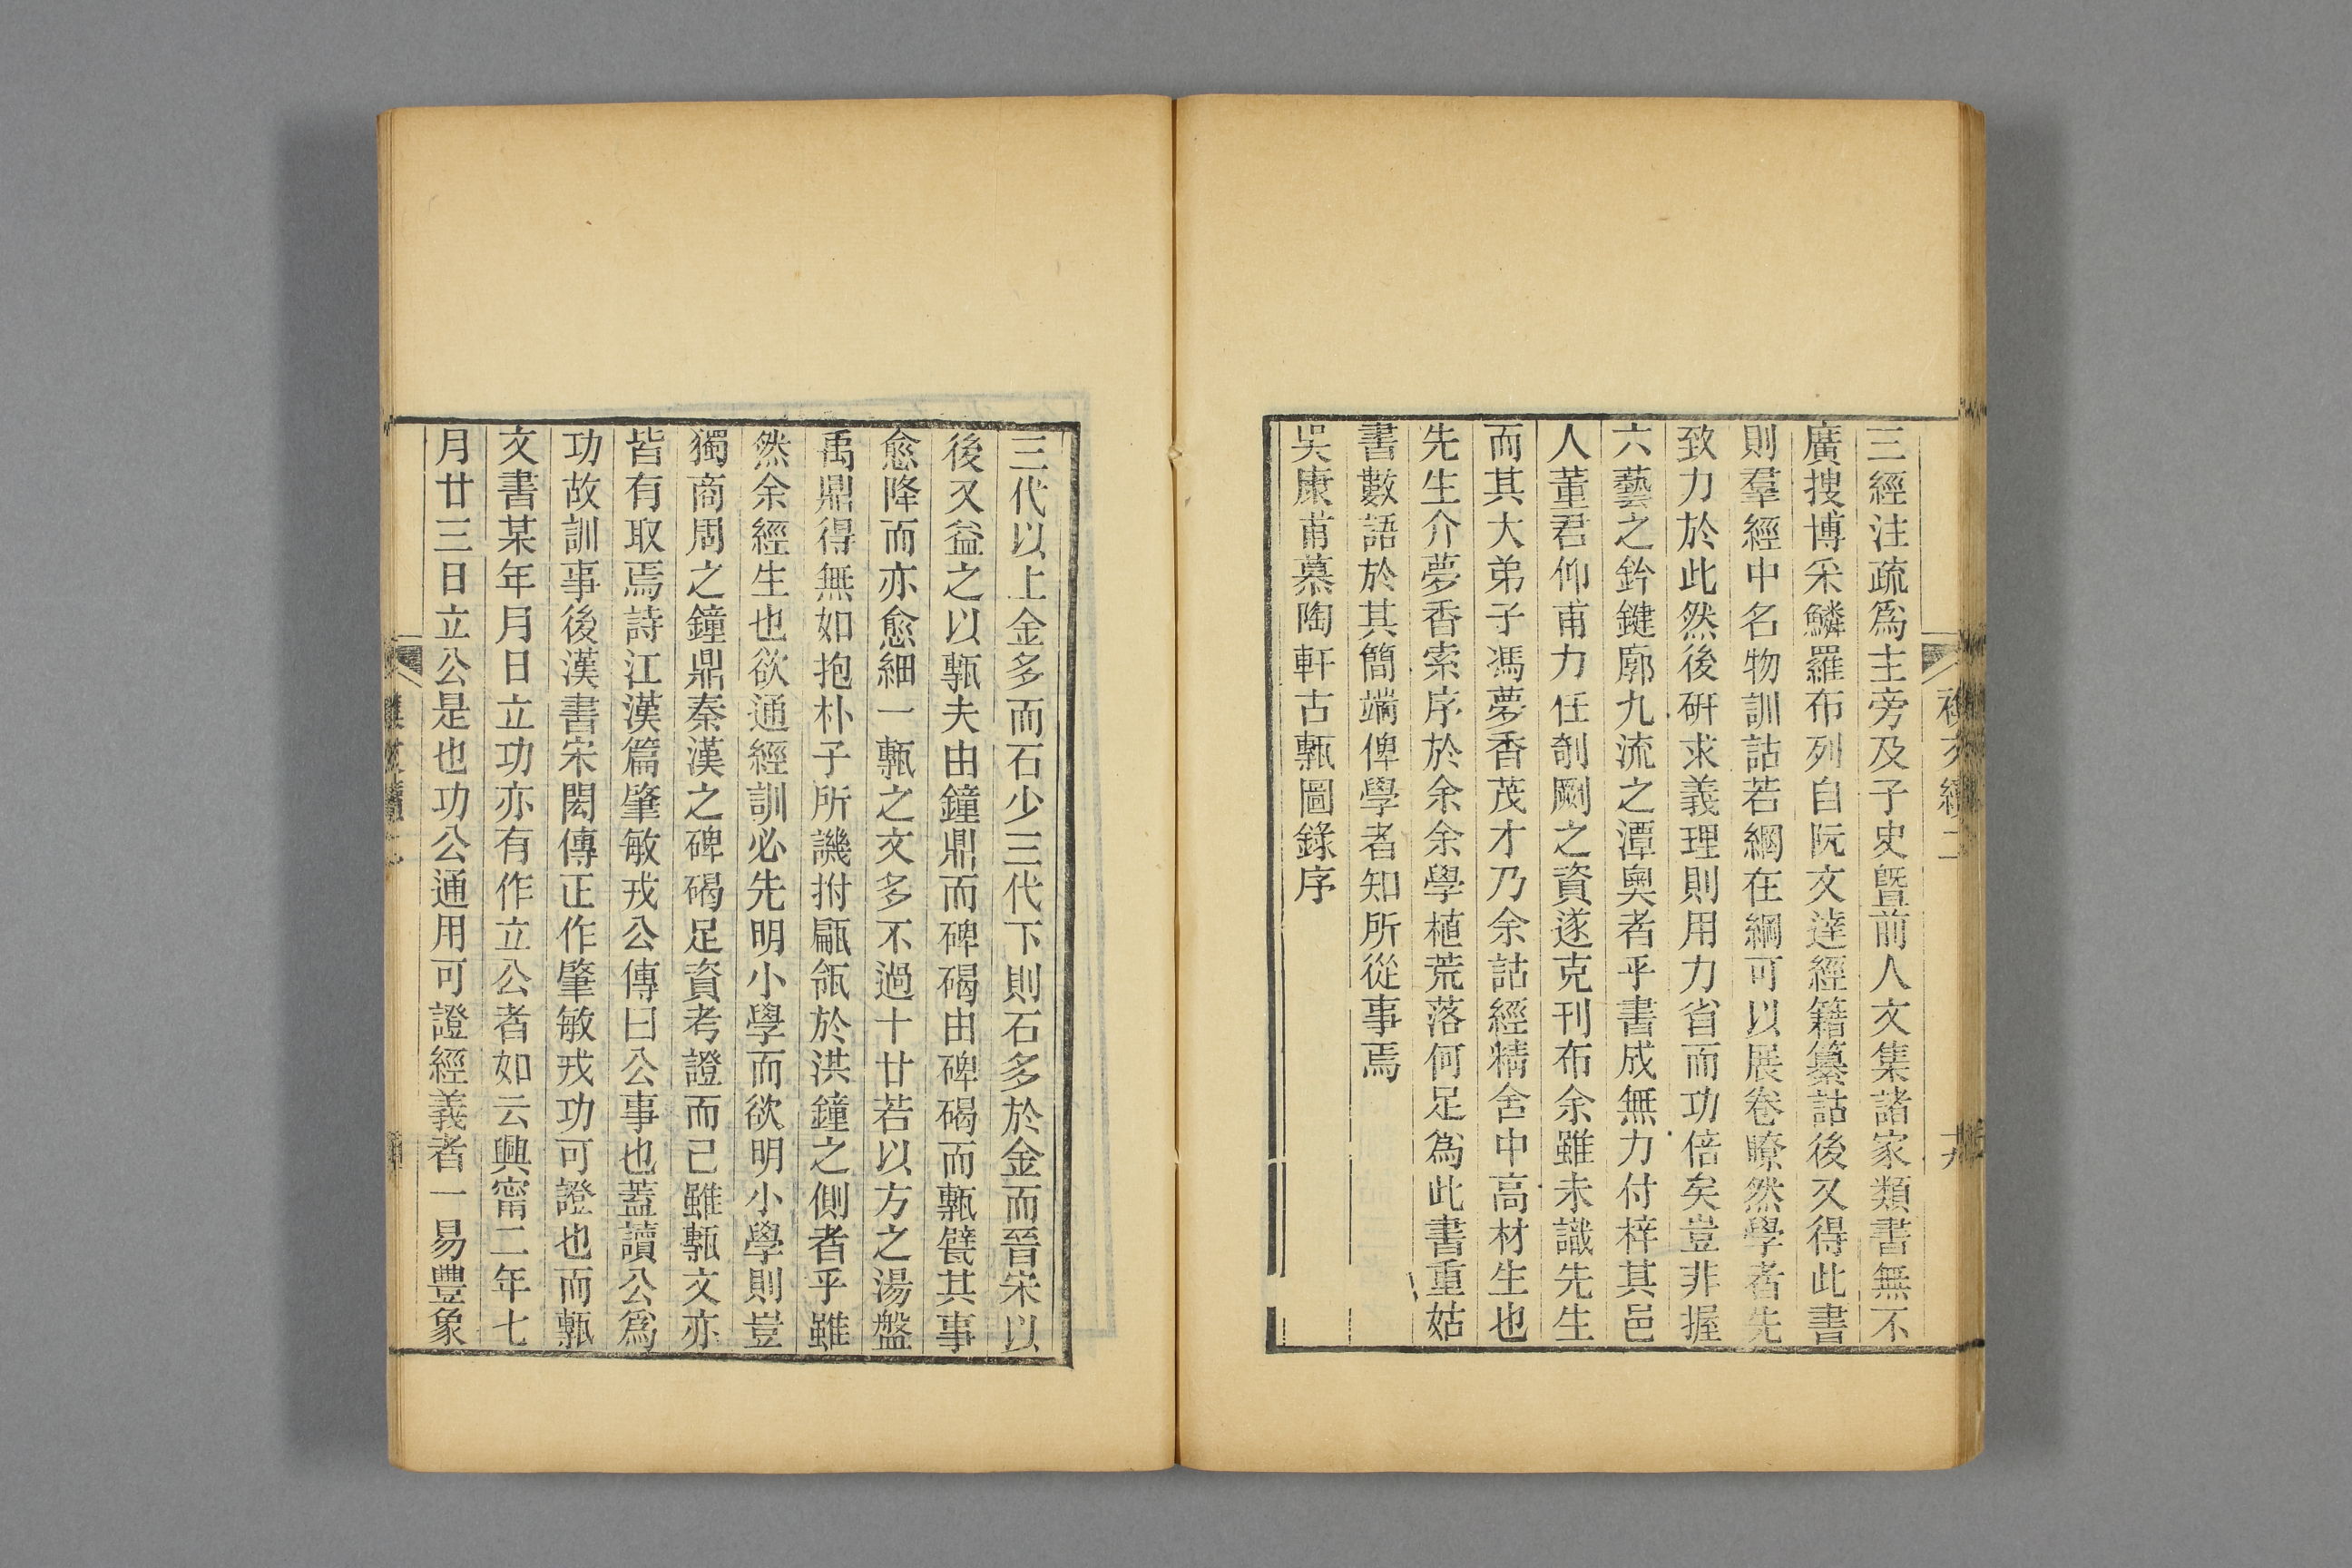 三經注疏爲主旁及子史曁前人文集諸家類書無不
廣搜博采鱗羅布列自阮文達經籍纂詁後又得此書
則羣經中名物訓詁若網在綱可以展卷瞭然學者先
致力於此然後硏求義理則用力省而功倍矣豈非握
六藝之鈐鍵廓九流之潭奧者乎書成無力付梓其邑
人董君仰甫力任剞劂之資遂克刊布余雖未識先生
而其大弟子馮夢香茂才乃余詁經精舍中高材生也
先生介夢香索序於余余學植荒落何足爲此書重姑
書數語於其簡端俾學者知所從事焉
吳康甫慕陶軒古甎圖錄序
三代以上金多而石少三代下則石多於金而晉宋以
後又益之以甎夫由鐘鼎而碑碣由碑碣而甎甓其事
愈降而亦愈細一甎之文多不過十廿若以方之湯盤
禹鼎得無如抱朴子所譏拊甂瓴於洪鐘之側者乎雖
然余經生也欲通經訓必先明小學而欲明小學則豈
獨商周之鐘鼎秦漢之碑碣足資考證而已雖甎文亦
皆有取焉詩江漢篇肇敏戎公傳曰公事也蓋讀公爲
功故訓事後漢書宋閎傳正作肇敏戎功可證也而甎
文書某年月日立功亦有作立公者如云興甯二年七
月廿三日立公是也功公通用可證經義者一易豐象